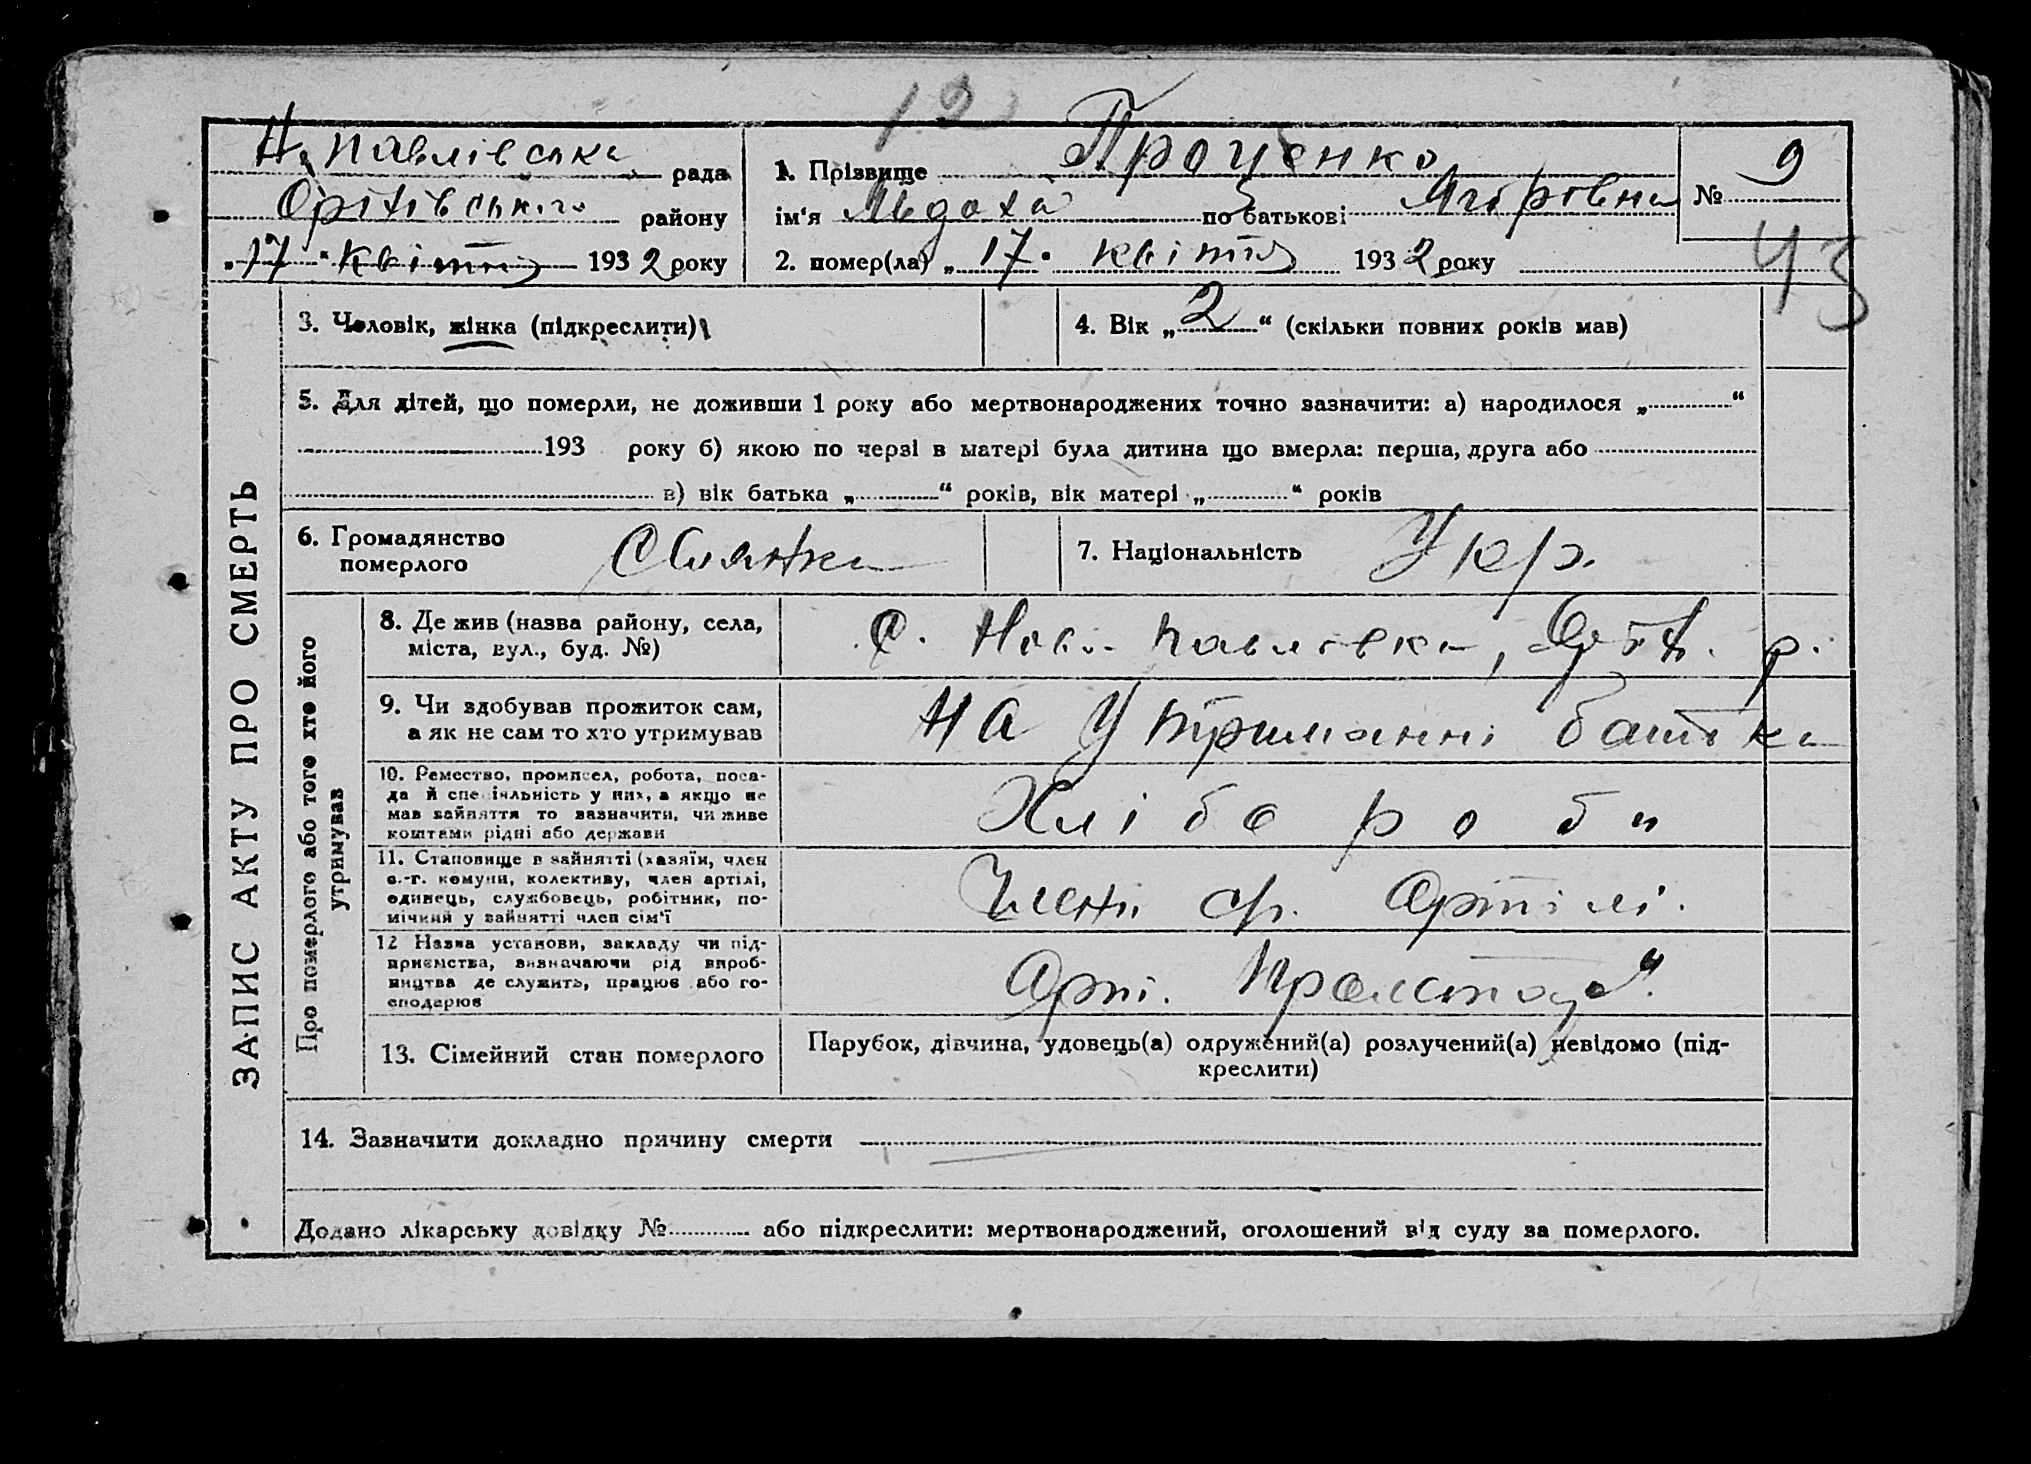 12
Н. Павлівська рада
Оріхівського району
„17“ Квітня 1932 року
1. Прізвище Проценко
ім'я по батькові Ягоровна
№ 9
2. помер(ла) „17“ квітня 1932 року
43
ЗАПИС АКТУ ПРО СМЕРТЬ
3. Чоловік, жінка (підкреслити)
4. Вік „2“ (скільки повних років мав)
5. Для дітей, що померли, не доживши 1 року або мертвонароджених точно зазначити: а) народилося „ “
193 року б) якою по черзі в матері була дитина що вмерла: перша, друга або
в) вік батька „ “ років, вік матері „ “ років
6. Громадянство
померлого
Селянка
7. Національність Укр.
Про померлого або того хто його
утримував
8. Де жив (назва району, села,
міста, вул., буд. №)
С. Ново Павловка, Оріх. р.
9. Чи здобував прожиток сам,
а як не сам то хто утримував
На утриманні батька
10. Ремество, промисел, робота, поса-
да й спеціяльність у них, а якщо не
мав зайняття то зазначити, чи живе
коштами рідні або держави
Хлібороби
11. Становище в зайнятті (хазяїн, член
с.-г. комуни, колективу, член артілі,
одинець, службовець, робітник, по-
мічний у зайнятті член сім'ї
Член ср. Артілі.
12 Назва установи, закладу чи під-
приємства, визначаючи рід вироб-
ництва де служить, працює або го-
сподарює
Арт.
13. Сімейний стан померлого
Парубок, дівчина, удовець(а) одружений(а) розлучений(а) невідомо (під-
креслити)
14. Зазначити докладно причину смерти
Додано лікарську довідку № або підкреслити: мертвонароджений, оголошений від суду за померлого.